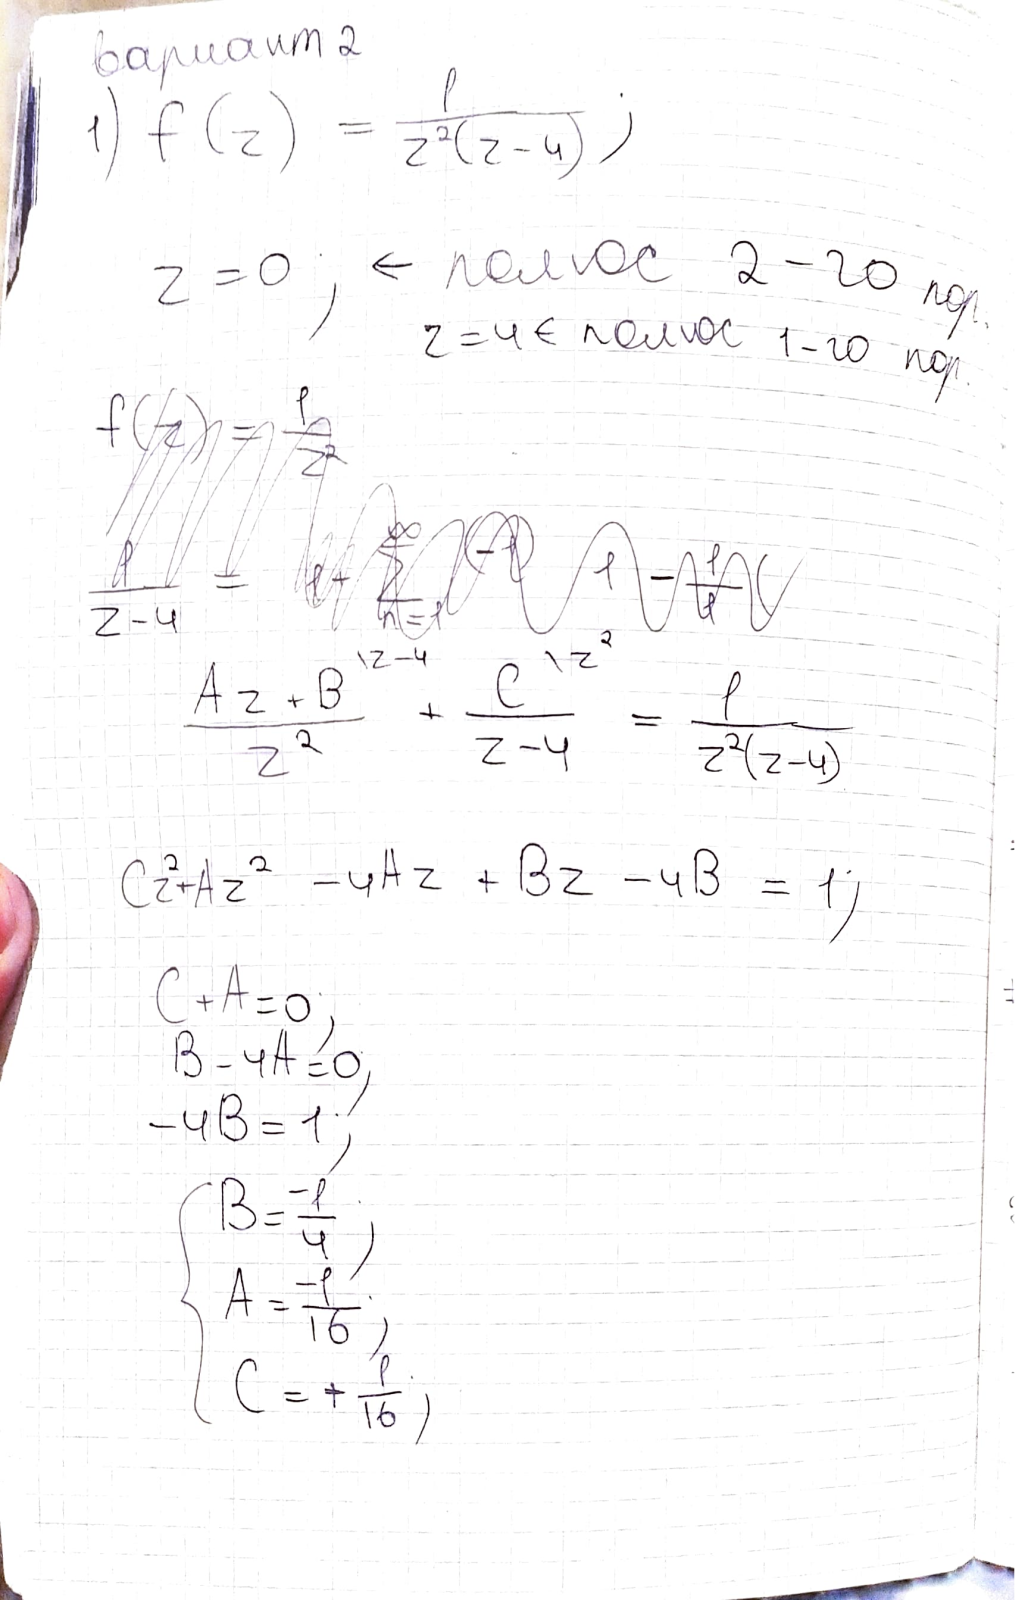 вариант 2
1) f(z) = 1/(z²(z-4));
z=0; ← полюс 2-го пор.
z=4 ← полюс 1-го пор.
f(z) = 1/z²
1/(z-4) =
(Az+B)/z² \z-4 + C/(z-4) \z² = 1/(z²(z-4))
Cz²+Az² -4Az + Bz -4B = 1;
C+A=0;
B-4A=0;
-4B=1;
B=-1/4;
A=-1/16;
C=+1/16;